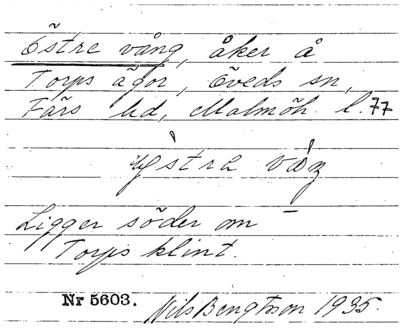 Östre vång, åker å
Torps ägor, Öveds sn,
Färs hd, Malmöh. l. 77
ỳstrə váŋ
Ligger söder om
Torps klint.
Nr 5603. Nils Bengtsson 1935.